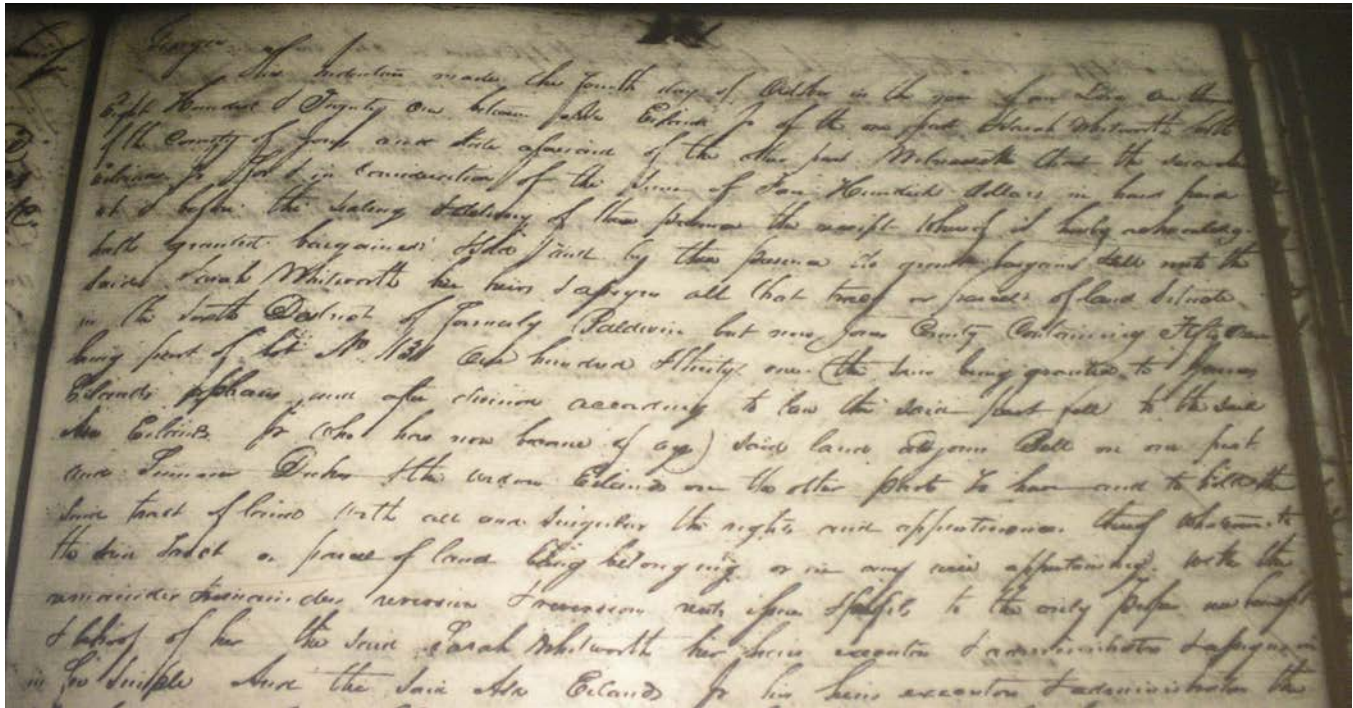 Georgia
This Indenture made the fourth day of October in the year of our Lord one thous
Eight Hundred & Twenty one between Asa Eiland Jr of the one part & Sarah Whitworth both
of the County of Jones and State aforesaid of the other part Witnesseth that the said Asa
Eiland Jr for & in consideration of the Sum of Four Hundred dollars in hand paid
at & before the Sealing & delivery of these presence the receipt whereof is hereby acknowledg
hath granted bargained & Sold and by these presence do grant bargain & Sell unto the
Said Sarah Whitworth her heirs & assigns all that tract or parcel of land Situate
in the District of formerly Baldwin but now Jones County Containing Fifty
being part of Lot No 131 One hundred & thirty one (the Same being granted to
Eilands orphans and after division according to law the Said part fell to the Said
Asa Eiland Jr who has now became of age) Said land adjoins Bell on one part
and Dukes & the widow Eiland on the other part To have and to hold the
Said tract of land with all and Singular the rights and appertinances thereof
the Said tract or parcel of land being belonging or in any wise appertaining with the
remainder & remainders reversion & reversions rents issues & profits to the only proper use benefit
& behoof of her the Said Sarah Whitworth her heirs executors & administrators & assigns
in fee Simple And the Said Asa Eiland Jr his heirs executors & administrators the